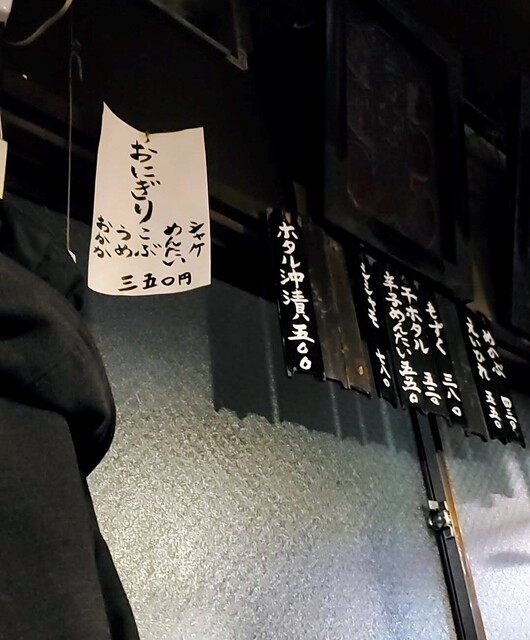 おにぎり
シャケ
めんたい
こぶ
うめ
おかか
三五〇円
ホタル沖漬 五〇〇
干ホタル 五五〇
辛子めんたい 五五〇
もずく 三八〇
えいひれ 五五〇